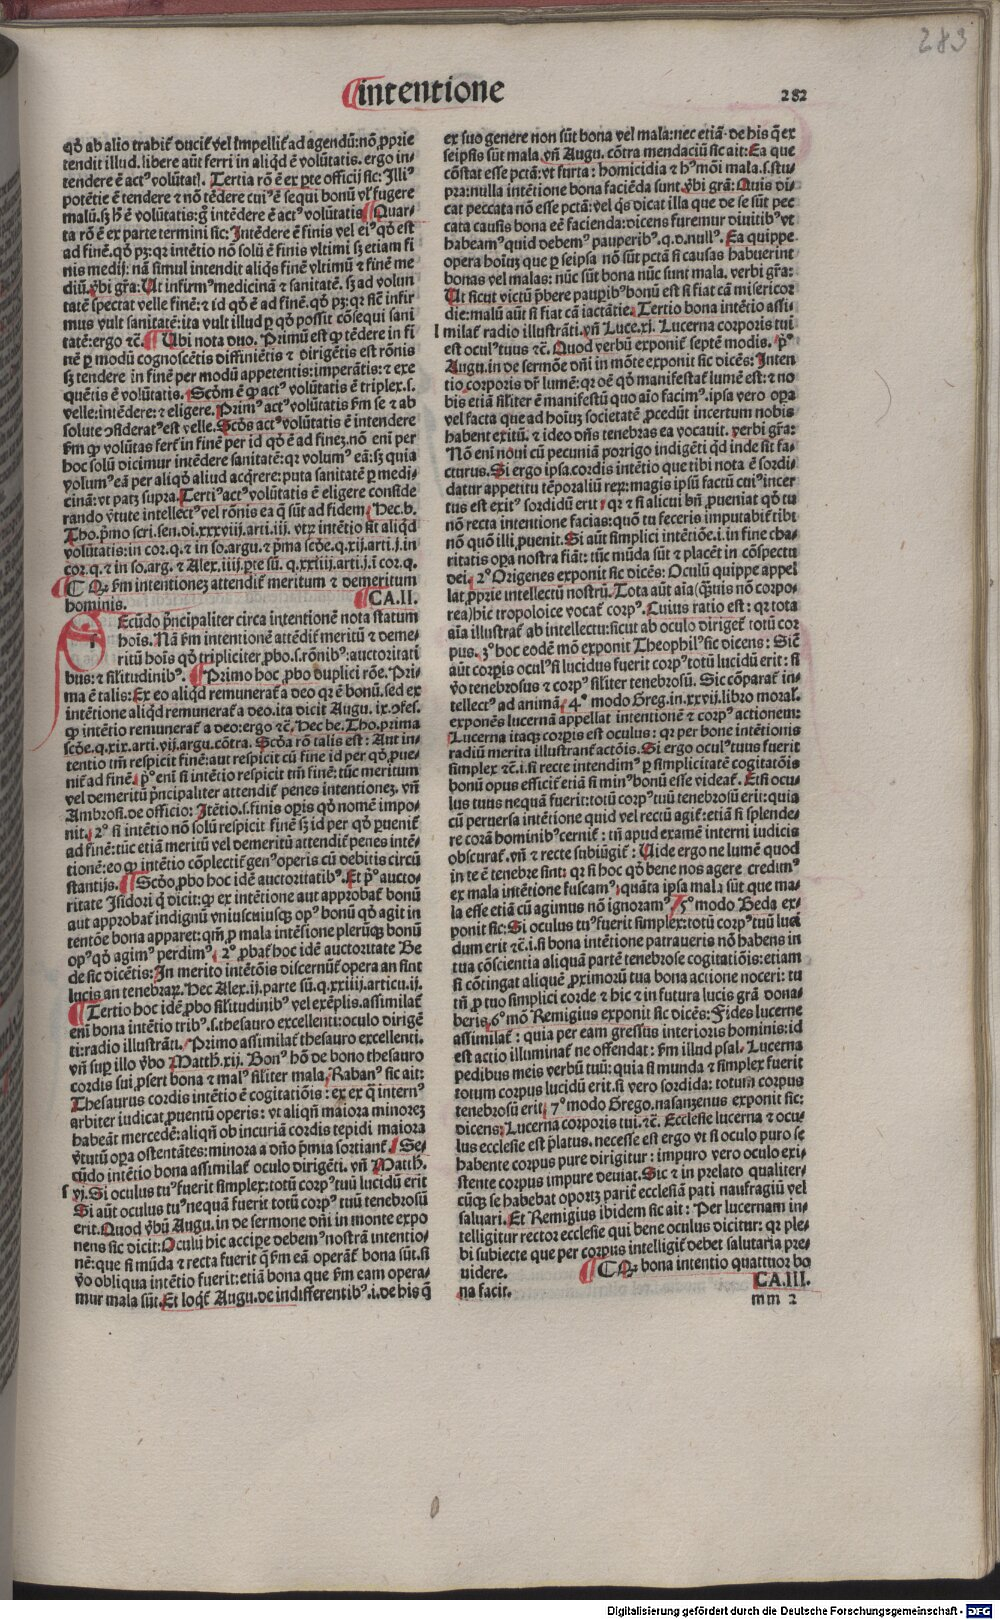 283
¶intentione
282
qđ ab alio trahit̃ ducit̃ vel impellit̃ ad agendũ: nõ ꝓprie
tendit illud. libere aũt ferri in aliqđ ẽ volũtatis. ergo in⸗
tendere ẽ actꝰ volũtat. Tertia rõ ẽ ex ꝑte officij sic: Illiꝰ
potẽtie ẽ tendere ⁊ nõ tẽdere cuiꝰ ẽ sequi bonũ vl̃ fugere
malũ. sꝫ h̃ ẽ volũtatis: g̃ intẽdere ẽ actꝰ volũtatis ¶Quar⸗
ta rõ ẽ ex parte termini sic: Intẽdere ẽ finis vel eiꝰ qđ est
ad finẽ. qđ pꝫ: qꝛ intẽtio nõ solũ ẽ finis vltimi sꝫ etiam fi
nis medij: nã simul intendit aliqͥs finẽ vltimũ ⁊ finẽ me
diũ. v̾bi gr̃a: Ut infirmꝰ medicinã ⁊ sanitatẽ. sꝫ ad volun
tatẽ spectat velle finẽ: ⁊ id qđ ẽ ad finẽ. qđ pꝫ: qꝛ sic̃ infir
mus vult sanitatẽ: ita vult illud ꝑ qđ possit cõsequi sani
tatẽ: ergo ⁊c̃. ¶Ubi nota duo. Primũ est ꝙ tẽdere in fi
nẽ ꝑ modũ cognoscẽtis diffiniẽtis ⁊ dirigẽtis est rõnis
sꝫ tendere in finẽ per modũ appetentis: imperãtis: ⁊ exe
quẽtis ẽ volũtatis. Scõm ẽ ꝙ actꝰ volũtatis ẽ triplex. s.
velle: intẽdere: ⁊ eligere. Primꝰ actꝰ volũtatis ẜm se ⁊ ab
solute ꝯsideratꝰ est velle. Scõs actꝰ volũtatis ẽ intendere
ẜm ꝙ volũtas fert̃ in finẽ per id qđ ẽ ad finez. nõ eni per
hoc solũ dicimur intẽdere sanitatẽ: qꝛ volumꝰ eã: sꝫ quia
volumꝰ eã per aliqđ aliud acq̃rere: puta sanitatẽ ꝑ medi⸗
cinã: vt patꝫ supra. Tertiꝰ actꝰ volũtatis ẽ eligere conside
rando v̾tute intellectꝰ vel rõnis ea q̃ sũt ad fidem. Hec. b.
Tho. p̃mo scri. sen. di. xxxviij. arti. iij. vtꝝ intẽtio sit aliqđ
volũtatis: in cor. q. ⁊ in so. argu. ⁊ p̃ma scđe. q. xij. arti. j. in
cor. q. ⁊ in so. arg. ⁊ Alex. iiij. ꝑte sũ. q. xxiiij. arti. j. i cor. q.
¶ Qꝛ ẜm intentionez attendit̃ meritum ⁊ demeritum
hominis. ¶CA.II.
Ecũdo p̃ncipaliter circa intentionẽ nota statum
hoĩs. Nã ẜm intentionẽ attẽdit̃ meritũ ⁊ deme⸗
ritũ hoĩs qđ tripliciter ꝓbo. s. rõnibꝰ: auctoritati
bus: ⁊ sil̃itudinibꝰ. ¶Primo hoc ꝓbo duplici rõe. Pri⸗
ma ẽ talis: Ex eo aliqđ remunerat̃ a deo qꝛ ẽ bonũ. sed ex
intẽtione aliqđ remunerat̃ a deo. ita dicit Augu. ix. ꝯfes.
ꝙ intẽtio remunerat̃ a deo: ergo ⁊c̃. Hec be. Tho. prima
scđe. q. xix. arti. vij. argu. cõtra. Scđa rõ talis est: Aut in⸗
tentio tm̃ respicit finẽ: aut respicit cũ fine id per qđ ꝓue⸗
nit̃ ad finẽ. pͦ. enĩ si intẽtio respicit tm̃ finẽ: tũc meritum
vel demeritũ p̃ncipaliter attendit̃ penes intentionez. vñ
Ambrosi. de officio: Itẽtio. s. finis oꝑis qđ nomẽ impo⸗
nit. 2ͦ si intẽtio nõ solũ respicit finẽ sꝫ id per qđ ꝑuenit̃
ad finẽ: tũc etiã meritũ vel demeritũ attendit̃ penes intẽ⸗
tionẽ: eo ꝙ intẽtio cõplectit̃ genꝰ operis cũ debitis circũ
stantijs. ¶Scđo ꝓbo hoc idẽ auctoritatibꝰ. Et pͦ aucto⸗
ritate Isidori q̃ dicit: ꝙ ex intẽtione aut approbat̃ bonũ
aut approbat̃ indignũ vniuscuiusqꝫ opꝰ bonũ qđ agit in
tentõe bona apparet: qm̃ ꝓ mala intẽsione plerũqꝫ bonũ
opꝰ qđ agimꝰ perdimꝰ. 2ͦ ꝓbat̃ hoc idẽ auctoritate Be
de sic dicẽtis: In merito intẽtõis discernũt̃ opera an sint
lucis an tenebraꝝ. Hec Alex. ij. parte sũ. q. xxiiij. articu. ij.
¶Tertio hoc idẽ ꝓbo sil̃itudinibꝰ vel exẽplis. assimilat̃
enĩ bona intẽtio tribꝰ. s. thesauro excellenti: oculo dirigẽ
ti: radio illustrãti. Primo assimilat̃ thesauro excellenti.
vñ suꝑ illo v̾bo Matth. xij. Bonꝰ hõ de bono thesauro
cordis sui ꝓfert bona ⁊ malꝰ sil̃iter mala. Rabanꝰ sic ait:
Thesaurus cordis intẽtio ẽ cogitatiõis: ex ex q̃ internꝰ
arbiter iudicat ꝓuentũ operis: vt aliqñ maiora minorez
habeãt mercedẽ: aliqñ ob incuriã cordis tepidi maiora
v̾tutũ oꝑa ostentãtes: minora a dño p̃mia sortiant̃. Se⸗
cũdo intẽtio bona assimilat̃ oculo dirigẽti. vñ Matth.
f vj. Si oculus tuꝰ fuerit simplex: totũ corpꝰ lucidũ erit
Si aũt oculus tuꝰ nequã fuerit totũ corpꝰ tuũ tenebrosũ
erit. Quod v̾bũ Augu. in de sermone dñi in monte expo
nens sic dicit: Oculũ hic accipe debemꝰ nostrã intentio⸗
nẽ: que si mũda ⁊ recta fuerit q̃ ẜm eã operat̃ bona sũt. si
v̾o obliqua intẽtio fuerit: etiã bona que ẜm eam opera⸗
mur mala sũt. Et loqͥt̃ Augu. de indifferentibꝰ. i. de his q̃
ex suo genere non sũt bona vel mala: nec etiã de his q̃ ex
seipsis sũt mala. vñ Augu. cõtra mendaciũ sic ait: Ea que
cõstat esse pctã: vt furta: homicidia ⁊ hꝰmõi mala. s. stu⸗
pra: nulla intẽtione bona faciẽda sunt v̾bi grã: Quis di⸗
cat peccata nõ esse pctã: vel qͥs dicat illa que de se sũt pec
cata causis bona eẽ facienda: dicens furemur diuitibꝰ vt
habeamꝰ quid demꝰ pauperibꝰ. q. d. nullꝰ. Ea quippe
opera hoĩuz que ꝑ seipsa nõ sũt pctã si causas habuerint
bonas vel malas: nũc sũt bona nũc sunt mala. verbi gr̃a:
Ut sicut victũ p̃bere pauꝑibꝰ bonũ est si fiat cã misericor
die: malũ aũt si fiat cã iactãtie. Tertio bona intẽtio assi⸗
l milat̃ radio illustrãti. vñ Luce. xi. Lucerna corporis tui
est oculꝰ tuus ⁊c̃. Quod verbũ exponit̃ septẽ modis. pͦ.
Augu. in de sermõe dñi in mõte exponit sic dicẽs: Inten
tio corporis dr̃ lumẽ: qꝛ oẽ qđ manifestat̃ lumẽ est: ⁊ no
bis etiã sil̃iter ẽ manifestũ quo aĩo facimꝰ. ipsa vero oꝑa
vel facta que ad hoĩuz societatẽ ꝓcedũt incertum nobis
habent exitũ. ⁊ ideo dñs tenebras ea vocauit. verbi gr̃a:
Nõ eni noui cũ pecuniã porrigo indigẽti qͥd inde sit fa⸗
cturus. Si ergo ipsa cordis intẽtio que tibi nota ẽ sordi⸗
datur appetitu tẽporaliũ reꝝ: magis ipsũ factũ cuiꝰ incer
tus est exitꝰ sordidũ erit: qꝛ ⁊ si alicui bñ ꝓueniat qđ tu
nõ recta intentione facias: quõ tu feceris imputabit̃ tibi
nõ quõ illi ꝓuenit. Si aũt simplici intẽtiõe. i. in fine cha⸗
ritatis oꝑa nostra fiãt: tũc mũda sũt ⁊ placẽt in cõspectu
dei. 2ͦ Origenes exponit sic dicẽs: Oculũ quippe appel
lat ꝓprie intellectũ nostrũ. Tota aũt aĩa (q̃uis nõ corpo⸗
rea) hic tropoloice vocat̃ corpꝰ. Cuius ratio est: qꝛ tota
aĩa illustrat̃ ab intellectu: sicut ab oculo diriget̃ totũ cor
pus. 3ͦ hoc eodẽ mõ exponit Theophilꝰ sic dicens: Sic̃
aũt corꝑis oculꝰ si lucidus fuerit corpꝰ totũ lucidũ erit: si
v̾o tenebrosus ⁊ corpꝰ sil̃iter tenebrosũ. Sic cõparat̃ in⸗
tellectꝰ ad animã. 4ͦ modo Greg. in. xxvij. libro moral.
exponẽs lucernã appellat intentionẽ ⁊ corpꝰ actionem:
Lucerna itaqꝫ corꝑis est oculus: qꝛ per bone intẽtionis
radiũ merita illustrant̃ actõis. Si ergo oculꝰ tuus fuerit
simplex ⁊c̃. i. si recte intendimꝰ ꝑ simplicitatẽ cogitatõis
bonũ opus efficit̃ etiã si minꝰ bonũ esse videat̃. Etsi ocu⸗
lus tuus nequã fuerit: totũ corpꝰ tuũ tenebrosũ erit: quia
cũ peruersa intẽtione quid vel rectũ agit̃: etiã si splende⸗
re corã hominibꝰ cernit̃: tñ apud examẽ interni iudicis
obscurat̃. vñ ⁊ recte subiũgit̃: Uide ergo ne lumẽ quod
in te ẽ tenebre sint: qꝛ si hoc qđ bene nos agere credimꝰ
ex mala intẽtione fuscamꝰ: quãta ipsa mala sũt que ma⸗
la esse etiã cũ agimus nõ ignoramꝰ? 5ͦ modo Beda ex⸗
ponit sic: Si oculus tuꝰ fuerit simplex: totũ corpꝰ tuũ luci
dum erit ⁊c̃. i. si bona intẽtione patraueris nõ habens in
tua cõscientia aliquã partẽ tenebrose cogitatiõis: etiam
si cõtingat aliquẽ ꝓximorũ tua bona actione noceri: tu
tñ ꝓ tuo simplici corde ⁊ hic ⁊ in futura lucis grã dona⸗
beris. 6ͦ mõ Remigius exponit sic dicẽs: Fides lucerne
assimilat̃: quia per eam gressus interioris hominis: id
est actio illuminat̃ ne offendat: ẜm illud psal. Lucerna
pedibus meis verbũ tuũ: quia si munda ⁊ simplex fuerit
totum corpus lucidũ erit. si vero sordida: totum corpus
tenebrosũ erit. 7ͦ modo Grego. nasanzenus exponit sic:
dicens: Lucerna corporis tui. ⁊c̃. Ecclesie lucerna ⁊ ocu⸗
lus ecclesie est p̃latus. necesse est ergo vt si oculo puro se
habente corpus pure dirigitur: impuro vero oculo exi⸗
stente corpus impure deuiat. Sic ⁊ in prelato qualiter⸗
cũqꝫ se habebat oportꝫ parit̃ ecclesiã pati naufragiũ vel
saluari. Et Remigius ibidem sic ait: Per lucernam in⸗
telligitur rector ecclesie qui bene oculus dicitur: qꝛ ple⸗
bi subiecte que per corpus intelligit̃ debet salutaria pre⸗
uidere. ¶ Qꝛ bona intentio quattuor bo
na facit. CA.III.
mm 2
Digitalisierung gefördert durch die Deutsche Forschungsgemeinschaft - DFG